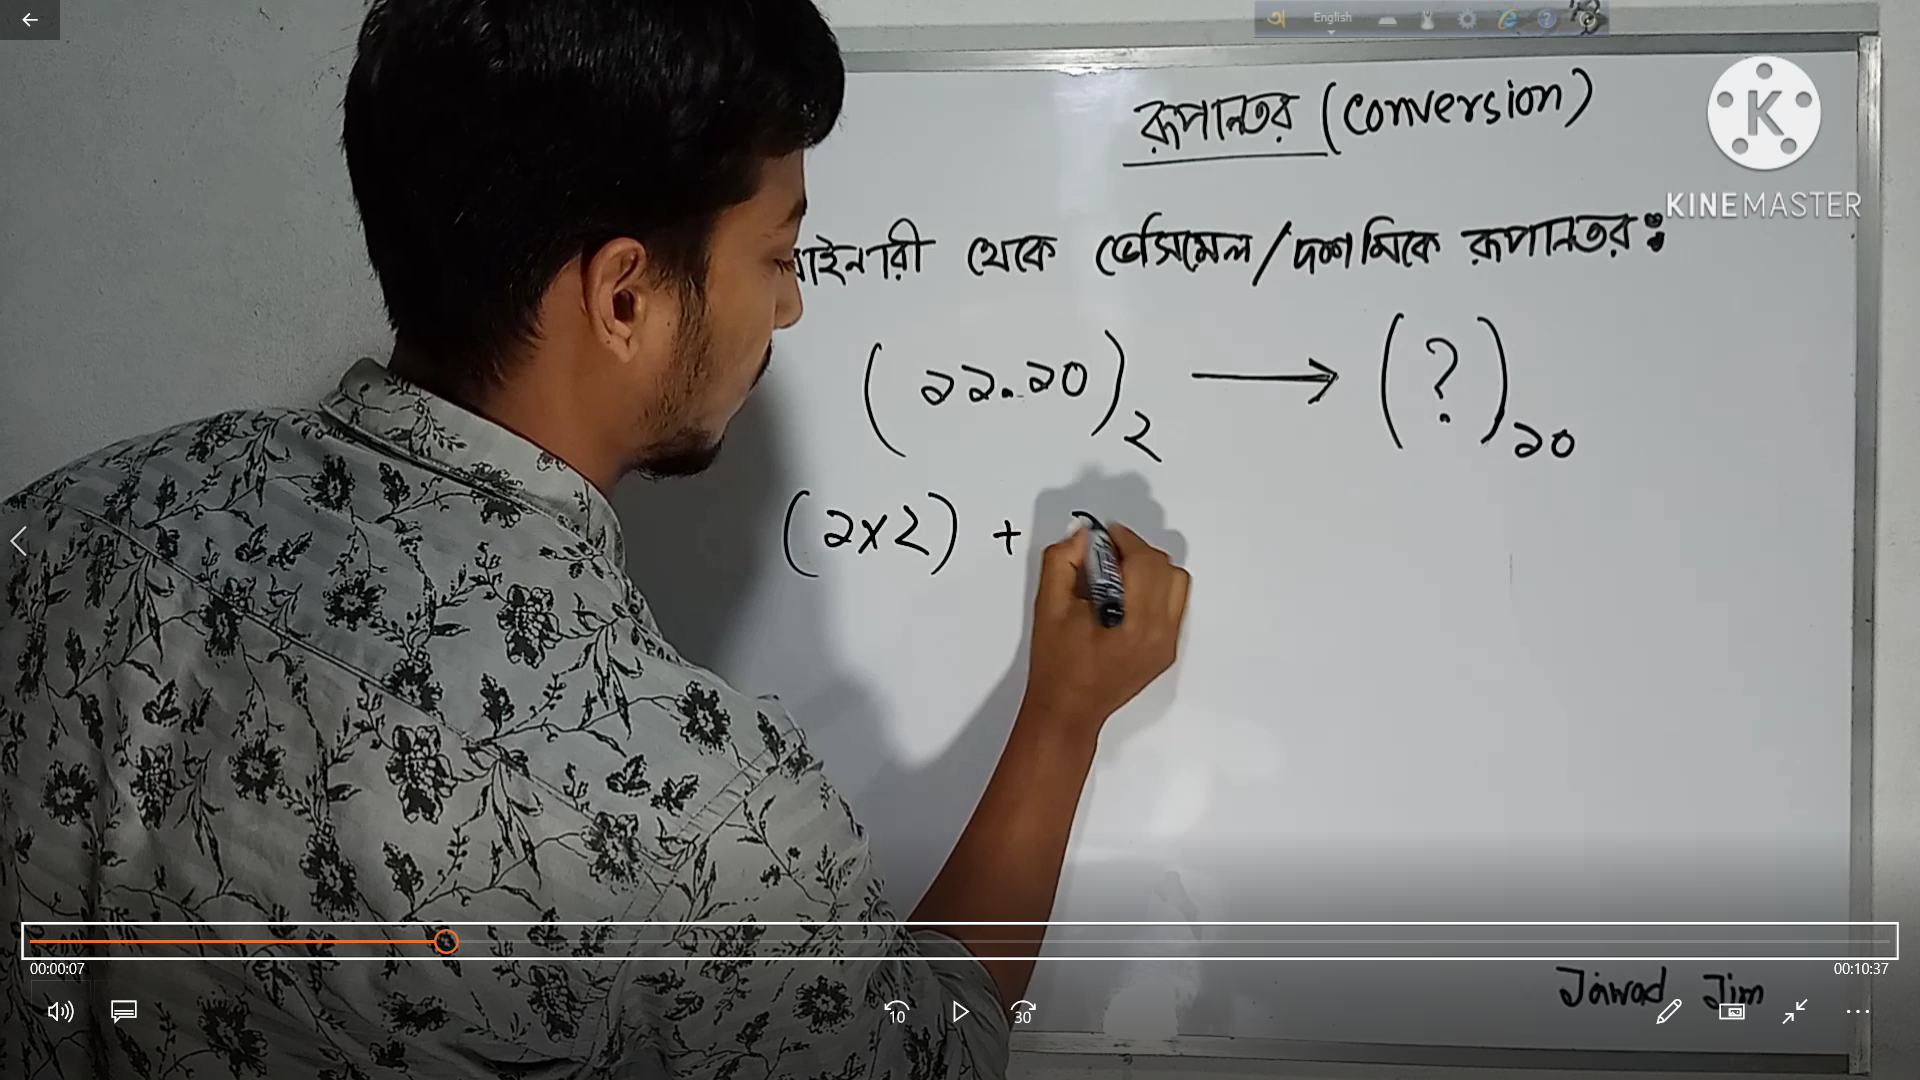 English
রূপান্তর (Conversion)
KINEMASTER
বাইনারী থেকে ডেসিমেল/দশমিকে রূপান্তর:
(১১.১০)২ → (?)১০
(১×২) + ১
00:00:07
00:10:37
Jawad Jim
10
30